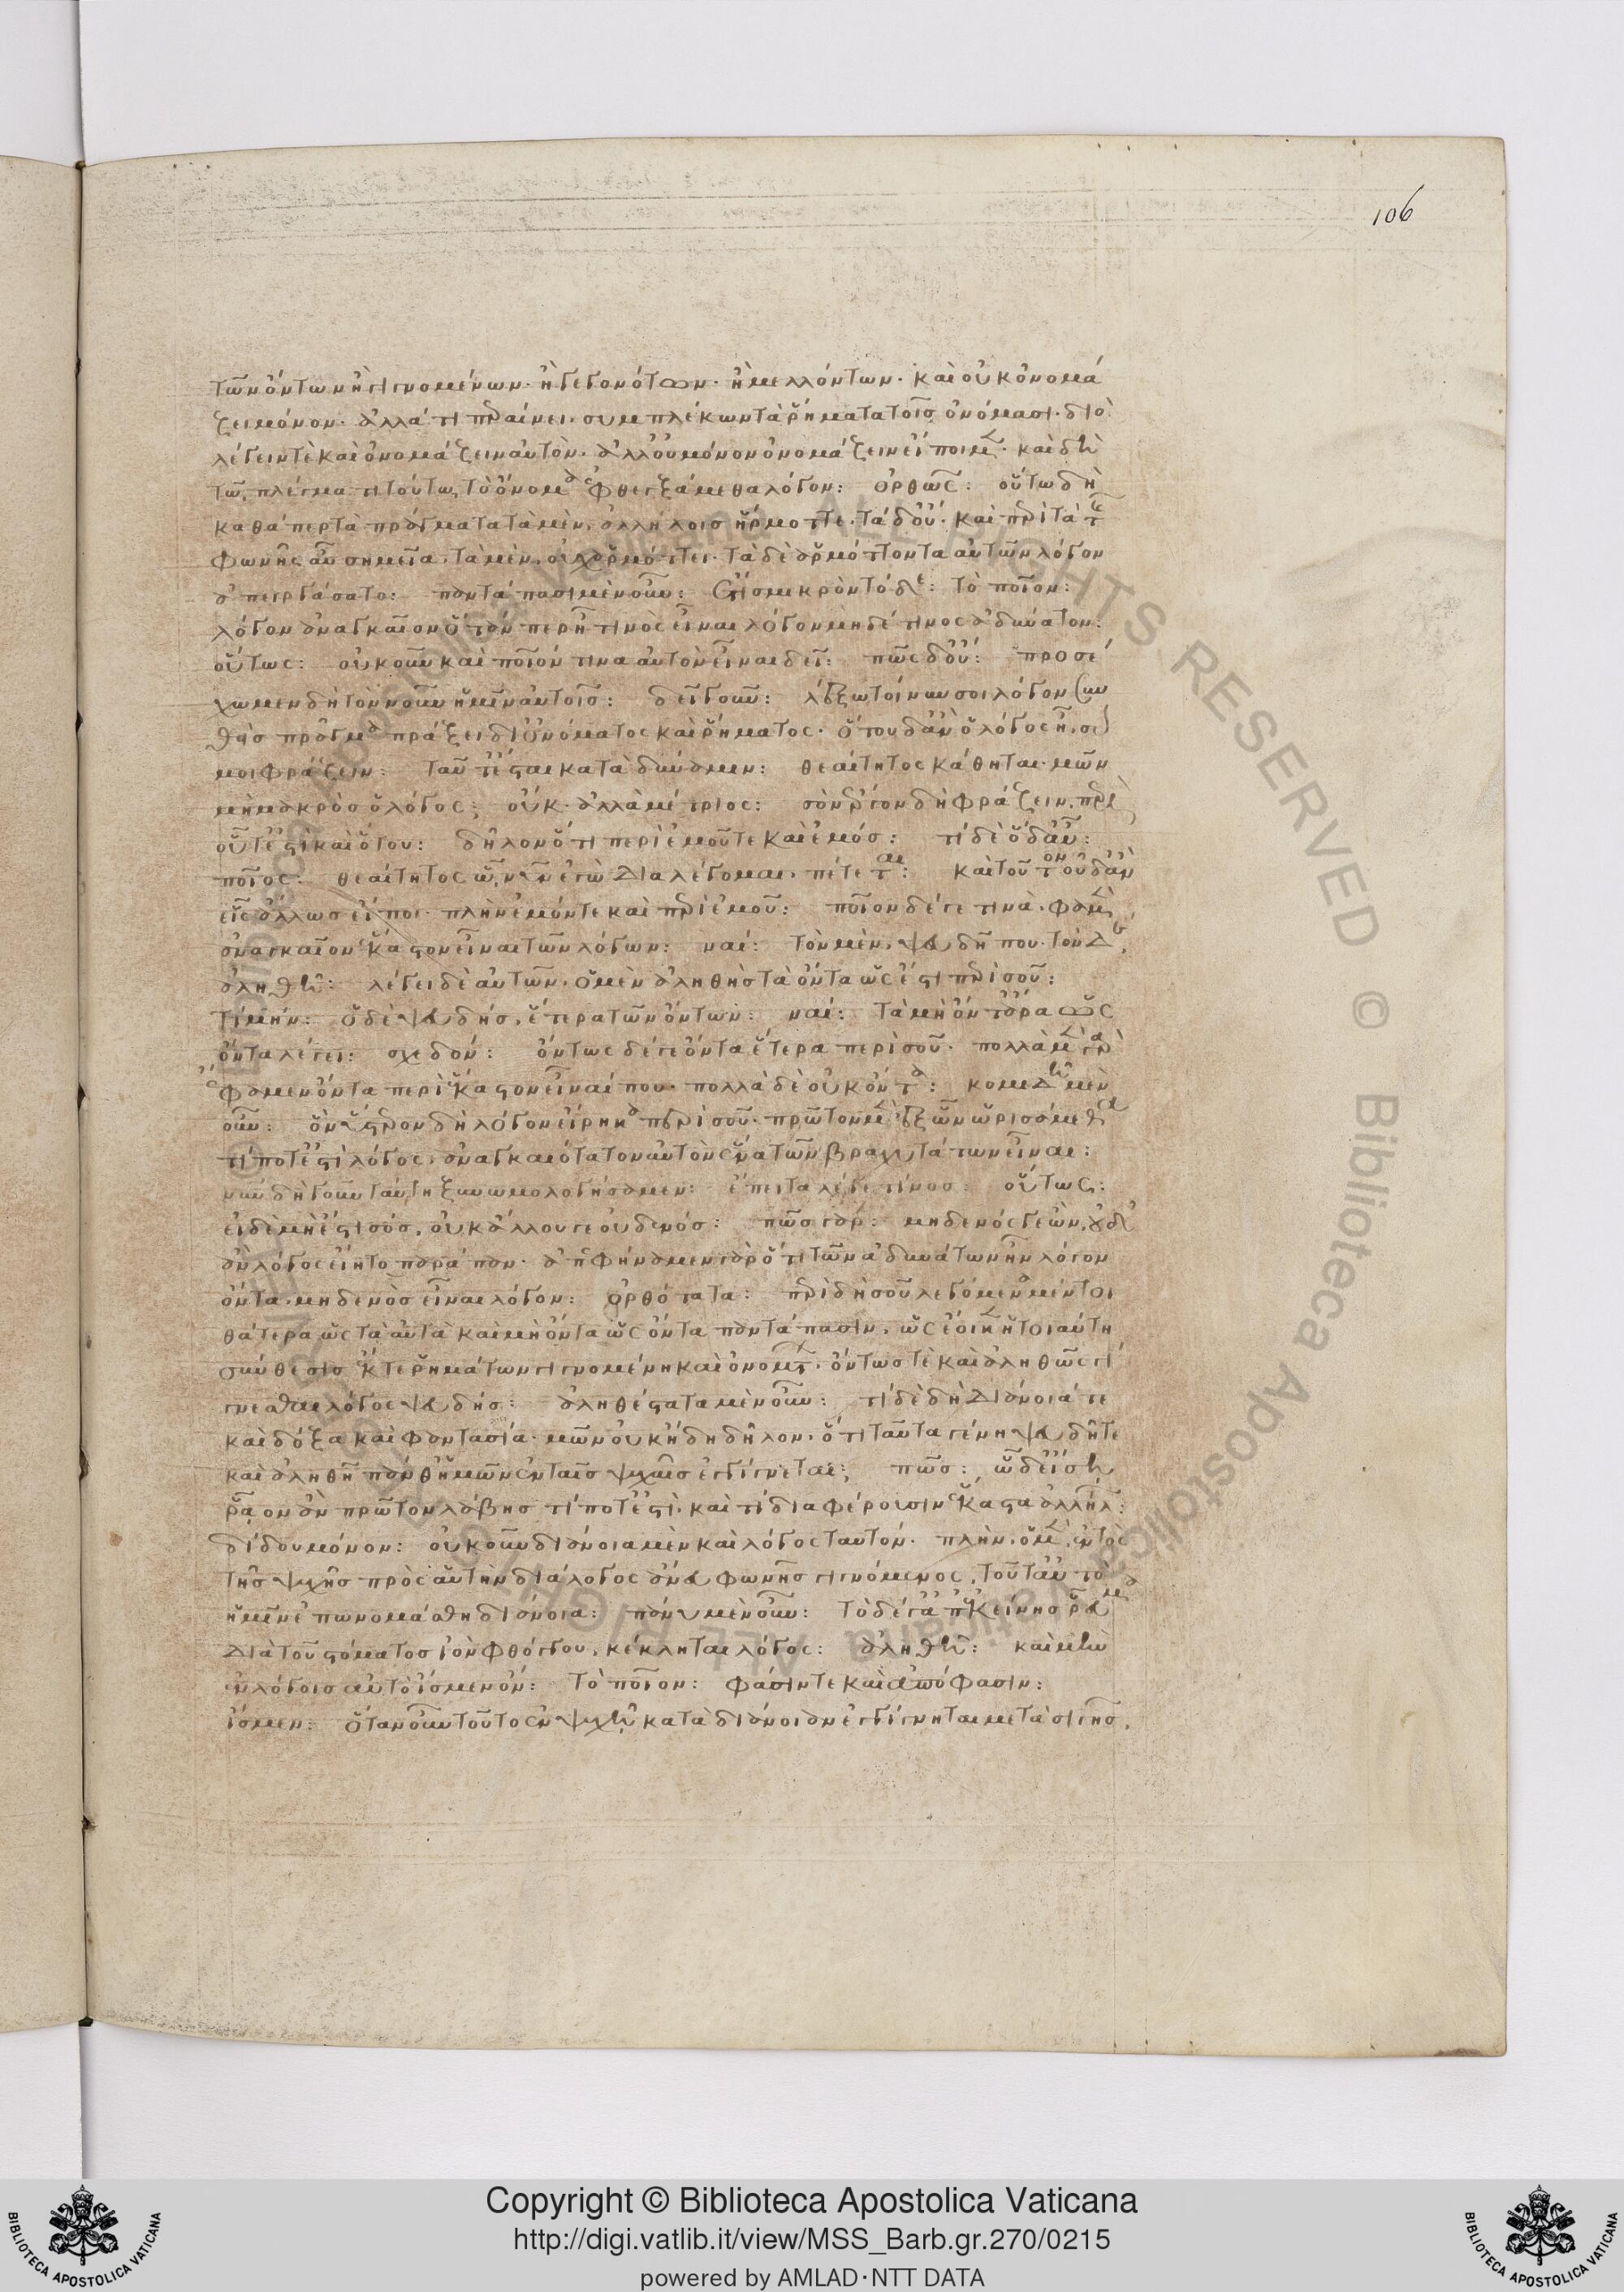 106
τῶν ὄντων ἢ γιγνομένων· ἢ γεγονότων· ἢ μελλόντων· καὶ οὐκ ὀνομά
ζει μόνον· ἀλλά τι περαίνει· συμπλέκων τὰ ῥήματα τοῖς ὀνόμασι· διὸ
λέγειν τὲ καὶ ὀνομάζειν αὐτὸν· ἀλλ' οὐ μόνον ὀνομάζειν εἴποιμεν· καὶ δὴ
τῶ πλέγματι τούτω, τὸ ὄνομα ἐφθεγξάμεθα λόγον: ὀρθῶς: οὕτω δὴ
καθάπερ τὰ πράγματα τὰ μὲν, ἀλλήλοις ἥρμοττε· τὰ δ' οὔ· καὶ περὶ τὰ τῆς
φωνῆς αὖ σημεῖα, τὰ μὲν, οὐχ ἁρμόττει· τὰ δὲ ἁρμόττοντα αὐτῶν λόγον
ἀπειργάσατο: παντάπασι μὲν οὖν: ἔτι σμικρὸν τόδε: τὸ ποῖον:
λόγον ἀναγκαῖον ὅταν περ ᾖ τινὸς εἶναι λόγον μηδέ τινος ἀδύνατον:
οὕτως: οὐκοῦν καὶ ποῖόν τινα αὐτὸν εἶναι δεῖ: πῶς δ' οὔ: προσέ
χωμεν δὴ τὸν νοῦν ἡμῖν αὐτοῖς: δεῖ γοῦν: λέξω τοίνυν σοι λόγον συν
θεὶς πρᾶγμα πράξει δι' ὀνόματος καὶ ῥήματος· ὅτου δ' ἂν ὁ λόγος ᾖ, σύ
μοι φράζειν: ταῦτ' ἔσται κατὰ δύναμιν: θεαίτητος κάθηται· μῶν
μὴ μακρὸς ὁ λόγος; οὔκ· ἀλλὰ μέτριος: σὸν ἔργον δὴ φράζειν, περὶ
οὗ τ' ἐστὶ καὶ ὅτου: δῆλον ὅτι περὶ ἐμοῦ τε καὶ ἐμός: τί δὲ ὅδ' αὖ:
ποῖος· θεαίτητος ὧ νῦν ἐγὼ διαλέγομαι, πέτεται: καὶ τοῦτον οὐδ' ἂν
εἷς ἄλλως εἴποι· πλὴν ἐμόν τε καὶ περὶ ἐμοῦ: ποῖον δέ γέ τινά· φαμὲν
ἀναγκαῖον ἕκαστον εἶναι τῶν λόγων: ναί: τὸν μὲν, ψευδῆ που· τὸν δὲ,
ἀληθῆ: λέγει δὲ αὐτῶν· ὁ μὲν ἀληθὴς τὰ ὄντα ὡς ἔστι περὶ σοῦ:
τί μήν: ὁ δὲ ψευδὴς, ἕτερα τῶν ὄντων: ναί: τὰ μὴ ὄντ' ἄρα ὡς
ὄντα λέγει: σχεδόν: ὄντως δέ γε ὄντα ἕτερα περὶ σοῦ· πολλὰ μὲν γὰρ
ἔφαμεν ὄντα περὶ ἕκαστον εἶναί που· πολλὰ δὲ οὐκ ὄντα: κομιδῆ μὲν
οὖν: ὃν ὕστερον δὴ λόγον εἴρηκα περὶ σοῦ· πρῶτον μὲν, ἐξ ὧν ὡρισάμεθα
τί ποτ' ἐστὶ λόγος, ἀναγκαιότατον αὐτὸν ἕνα τῶν βραχυτάτων εἶναι:
νῦν δὴ γοῦν ταύτη ξυνωμολογήσαμεν: ἔπειτα λέγε τίνος: οὕτως:
εἰ δὲ μὴ ἔστι σός, οὐκ ἄλλου γε οὐδενός: πῶς γάρ: μηδενός γε ὢν, οὐδ'
ἂν λόγος εἴη τοπαράπαν· ἀπεφήναμεν γὰρ ὅτι τῶν ἀδυνάτων ἦν λόγον
ὄντα, μηδενὸς εἶναι λόγον: ὀρθότατα: περὶ δὴ σοῦ λεγόμενα μέντοι
θάτερα ὡς τὰ αὐτὰ καὶ μὴ ὄντα ὡς ὄντα παντάπασιν, ὡς ἔοικεν ἡ τοιαύτη
σύνθεσις ἔκ τε ῥημάτων γιγνομένη καὶ ὀνομάτων, ὄντως τὲ καὶ ἀληθῶς γί
γνεσθαι λόγος ψευδής: ἀληθέστατα μὲν οὖν: τί δὲ δὴ διάνοιά τε
καὶ δόξα καὶ φαντασία· μῶν οὐκ ἤδη δῆλον, ὅτι ταῦτα γένη ψευδῆ τε
καὶ ἀληθῆ πάνθ' ἡμῶν ἐν ταῖς ψυχαῖς ἐγγίγνεται; πῶς: ὧδ' εἴση
ῥᾶον ἂν πρῶτον λάβης τί ποτ' ἐστὶ, καὶ τί διαφέρουσιν ἕκαστα ἀλλήλων:
δίδου μόνον: οὐκοῦν διάνοια μὲν καὶ λόγος ταυτόν· πλὴν, ὁ μὲν, ἐντὸς
τῆς ψυχῆς πρὸς αὑτὴν διάλογος ἄνευ φωνῆς γιγνόμενος, τοῦτ' αὐτὸ
ἡμῖν ἐπωνομάσθη διάνοια: πάνυ μὲν οὖν: τὸ δέ γ' ἀπ' ἐκείνης ῥεῦμα
διὰ τοῦ στόματος ἰὸν φθόγγου, κέκληται λόγος: ἀληθῆ: καὶ μὴν
ἐν λόγοις αὐτὸ ἴσμεν ὄν: τὸ ποῖον: φάσιν τε καὶ ἀπόφασιν:
ἴσμεν: ὅταν οὖν τοῦτο ἐν ψυχῆ κατὰ διάνοιαν ἐγγίγνηται μετὰ σιγῆς,
Copyright © Biblioteca Apostolica Vaticana
http://digi.vatlib.it/view/MSS_Barb.gr.270/0215
powered by AMLAD·NTT DATA
BIBLIOTECA APOSTOLICA VATICANA
BIBLIOTECA APOSTOLICA VATICANA